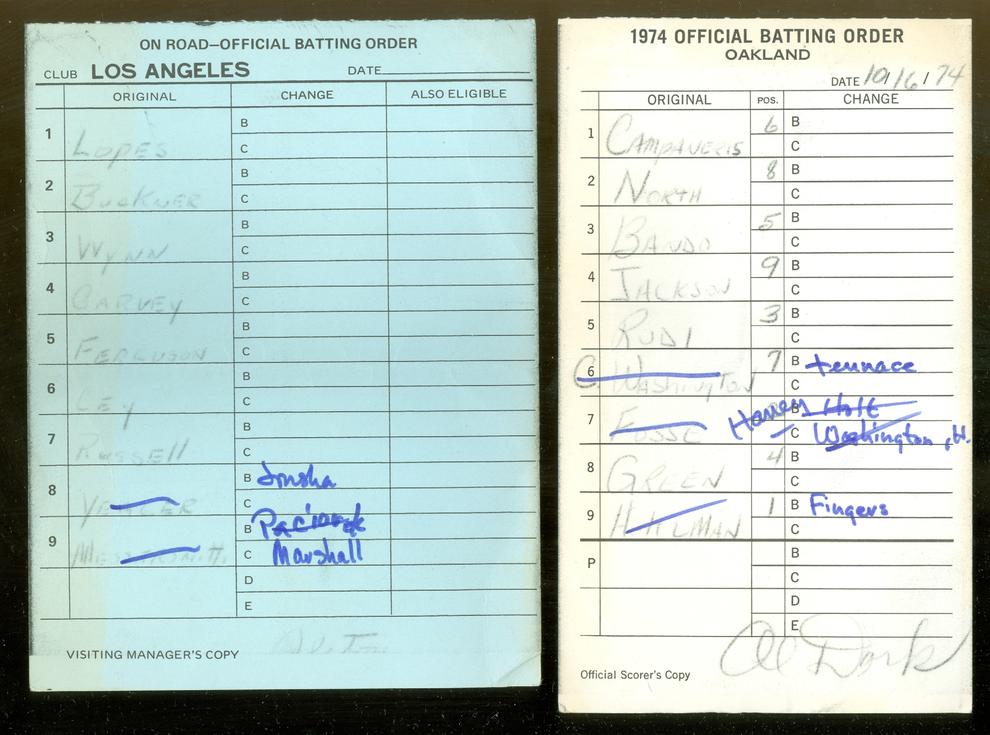 ON ROAD—OFFICIAL BATTING ORDER
CLUB LOS ANGELES DATE
ORIGINAL CHANGE ALSO ELIGIBLE
1 B
LOPES C
2 B
BUCKNER C
3 B
WYNN C
4 B
GARVEY C
5 B
FERGUSON C
6 B
CEY C
7 B
RUSSELL C
8 B Joshua
YEAGER C
9 B Paciorek
MESSERSMITH C Marshall
D
E
VISITING MANAGER'S COPY
1974 OFFICIAL BATTING ORDER
OAKLAND
DATE 10/16/74
ORIGINAL POS. CHANGE
1 CAMPANERIS 6 B
C
2 NORTH 8 B
C
3 BANDO 5 B
C
4 JACKSON 9 B
C
5 RUDI 3 B
C
6 C. WASHINGTON 7 B tennace
C
7 FOSSE Haney B Holt
C Washington, H.
8 GREEN 4 B
C
9 HOLTZMAN 1 B Fingers
C
P B
C
D
E
Al Dark
Official Scorer's Copy